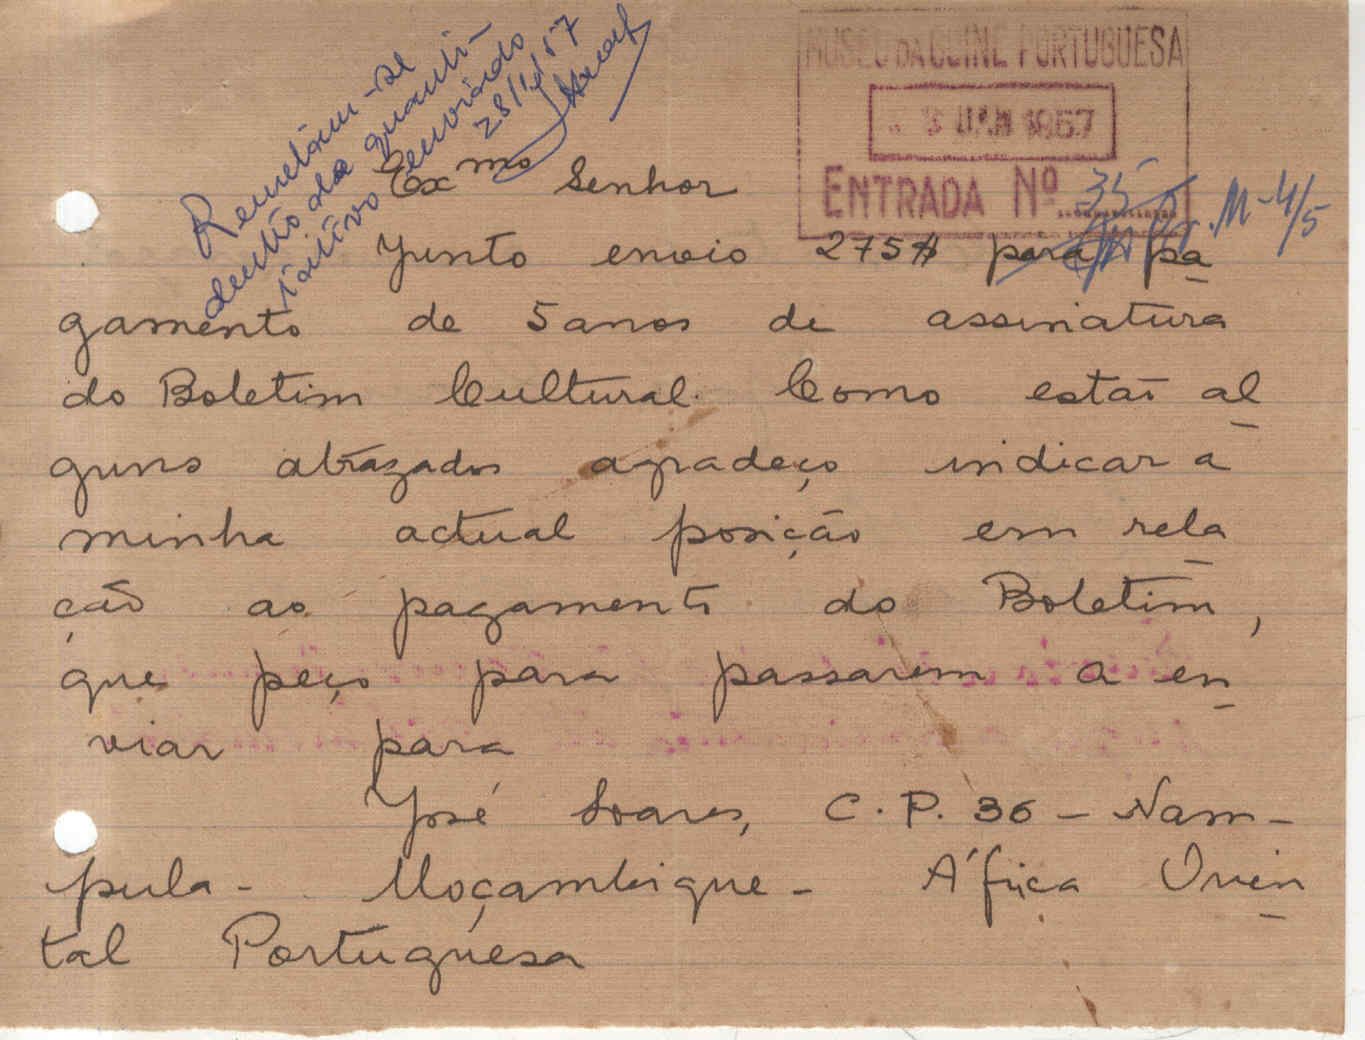 Remetam-se
dentro da quanti-
tativo enviado
28/1/57
MUSEU DA GUINÉ PORTUGUESA
3 JAN 1957
ENTRADA Nº 35
M-4/5
Exmo Senhor
Junto envio 275$ para pa
gamento de 5 anos de assinatura
do Boletim Cultural. Como estão al
guns atrazados agradeço indicar a
minha actual posição em rela
ção ao pagamento do Boletim,
que peço para passarem a en
viar para
José Soares, C.P. 36 - Nam-
pula - Moçambique - África Orien
tal Portuguesa